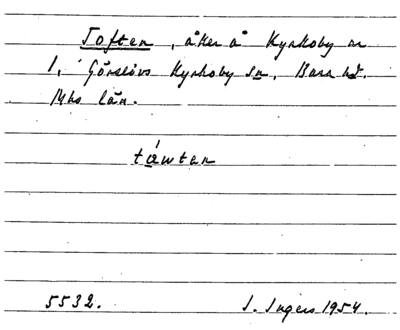 Toften, åker å Kyrkoby nr
1, Görslövs Kyrkoby sn, Bara hd.
Mhs län.
táwtan
5532.
I. Ingers 1954.